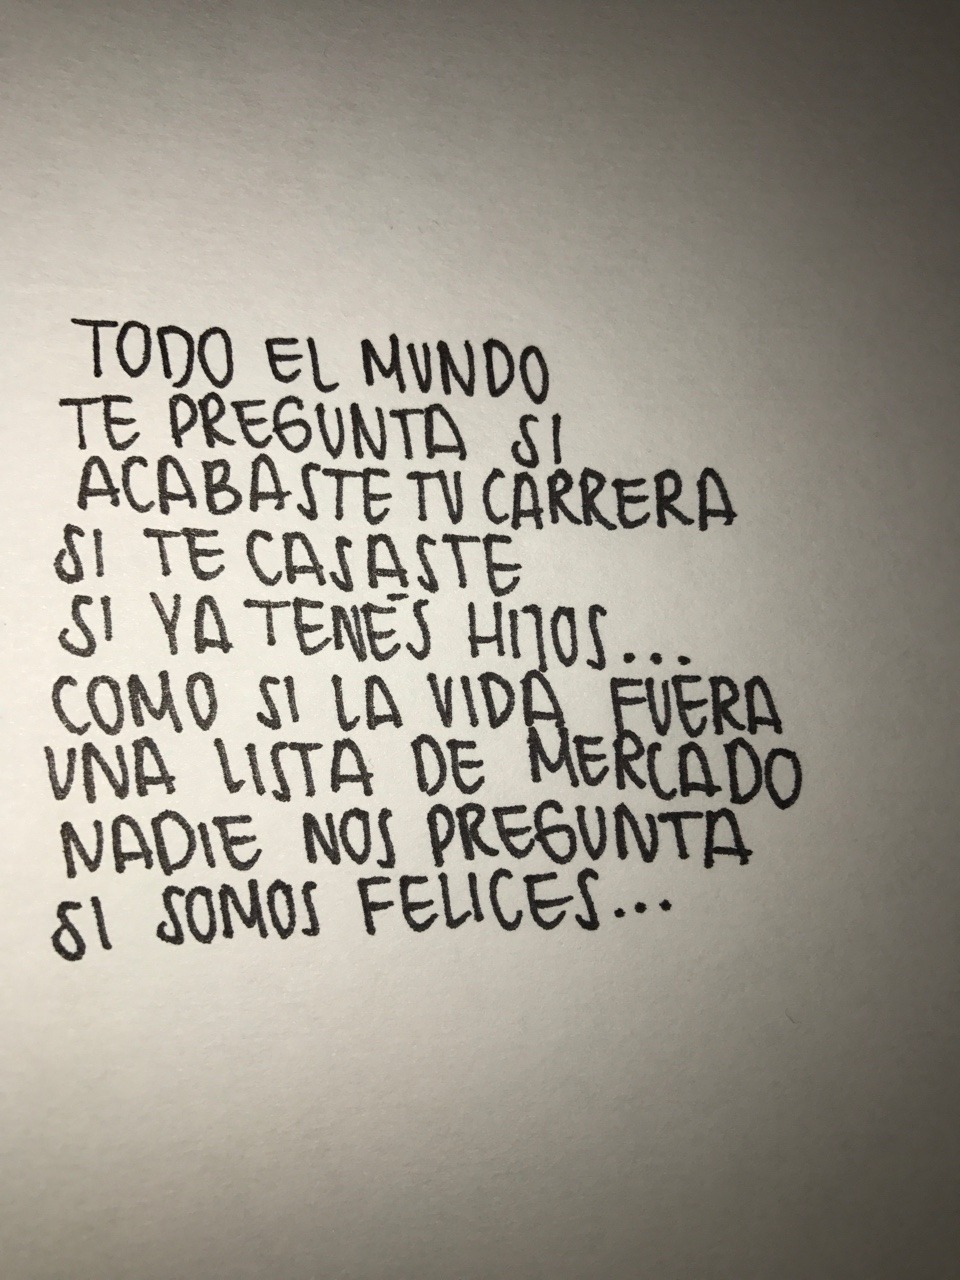 TODO EL MUNDO
TE PREGUNTA SI
ACABASTE TU CARRERA
SI TE CASASTE
SI YA TENÉS HIJOS...
COMO SI LA VIDA FUERA
UNA LISTA DE MERCADO
NADIE NOS PREGUNTA
SI SOMOS FELICES...